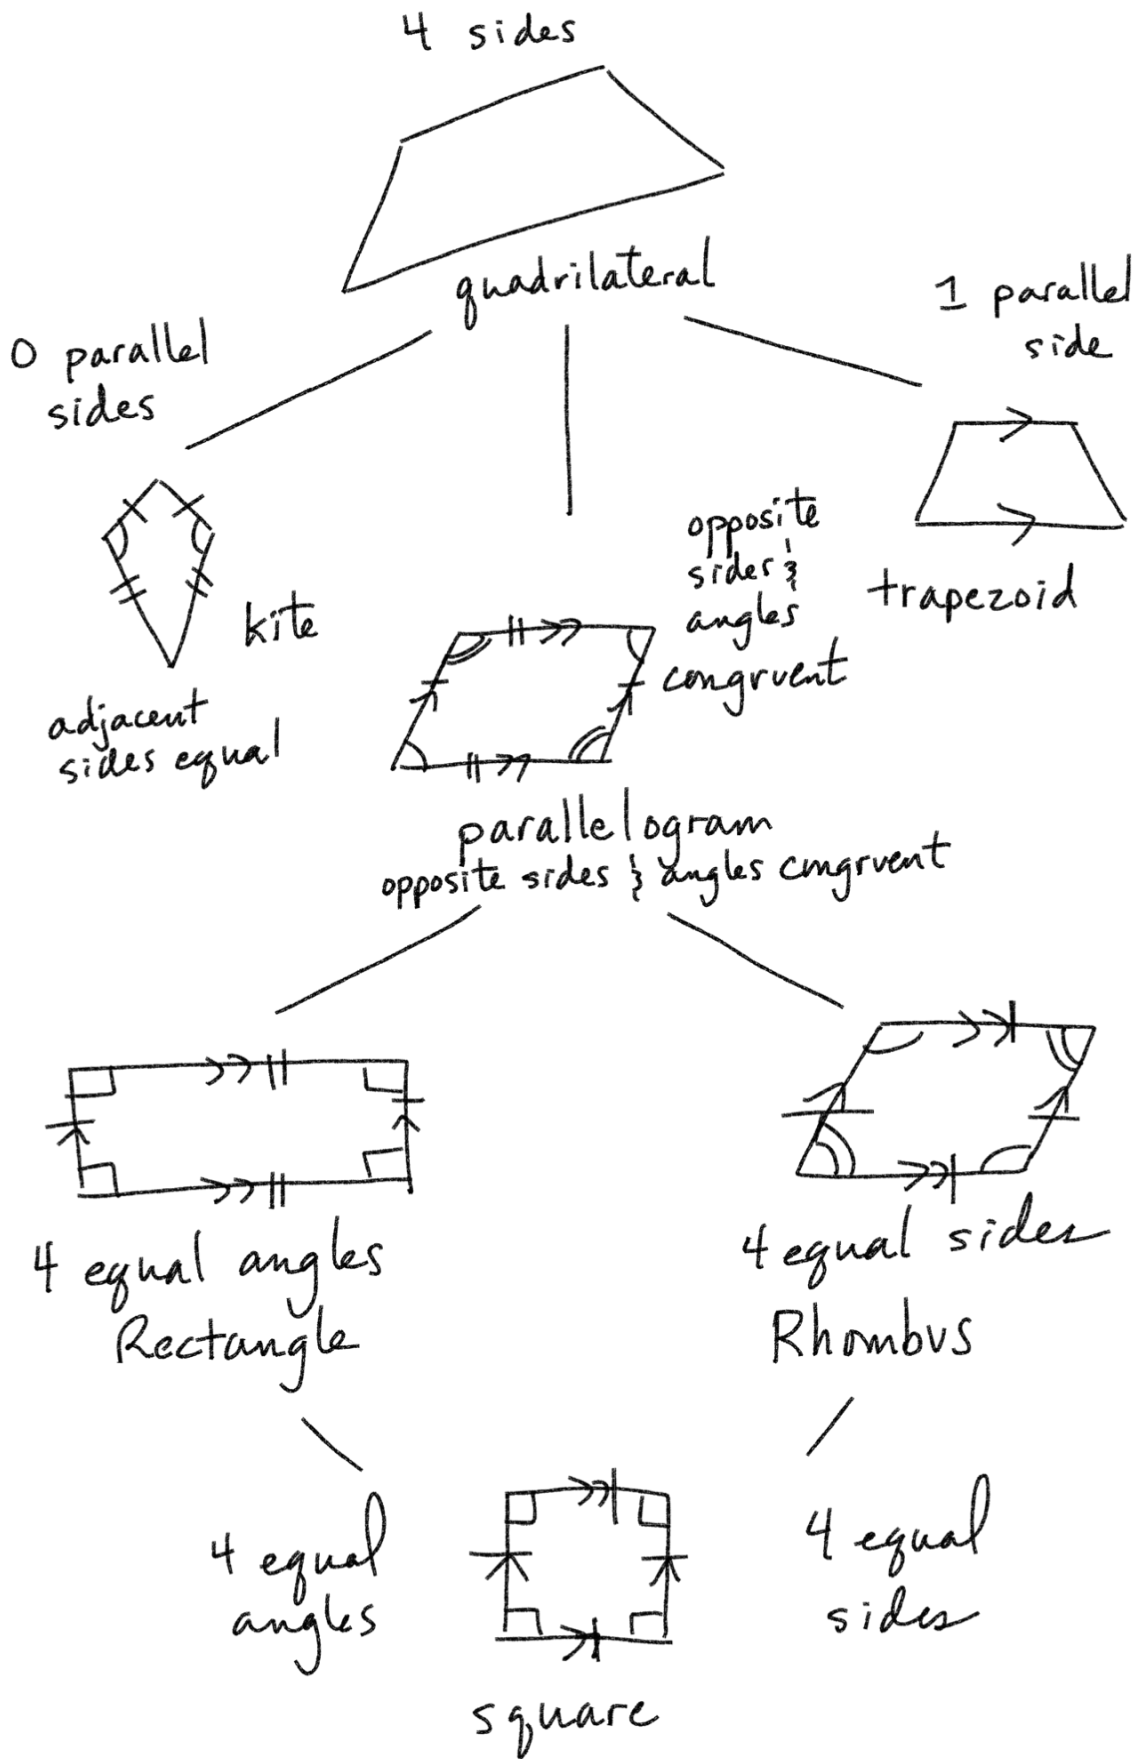 4 sides
quadrilateral
0 parallel
sides
1 parallel
side
kite
adjacent
sides equal
opposite
sides &
angles
congruent
trapezoid
parallelogram
opposite sides & angles congruent
4 equal angles
Rectangle
4 equal sides
Rhombus
4 equal
angles
4 equal
sides
square